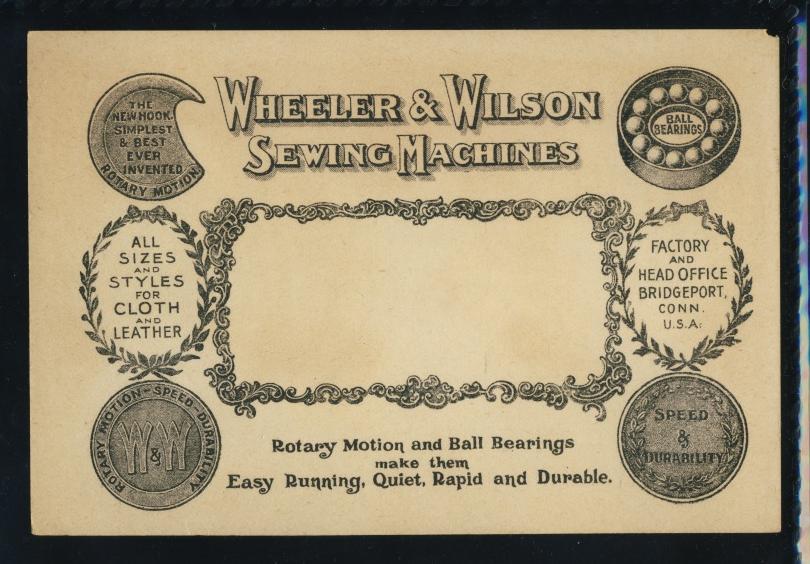 WHEELER & WILSON
SEWING MACHINES
THE
NEW HOOK.
SIMPLEST
& BEST
EVER
INVENTED
ROTARY MOTION.
BALL
BEARINGS
ALL
SIZES
AND
STYLES
FOR
CLOTH
AND
LEATHER
FACTORY
AND
HEAD OFFICE
BRIDGEPORT,
CONN.
U.S.A.
ROTARY MOTION-SPEED-DURABILITY
W & W
SPEED
&
DURABILITY
Rotary Motion and Ball Bearings
make them
Easy Running, Quiet, Rapid and Durable.